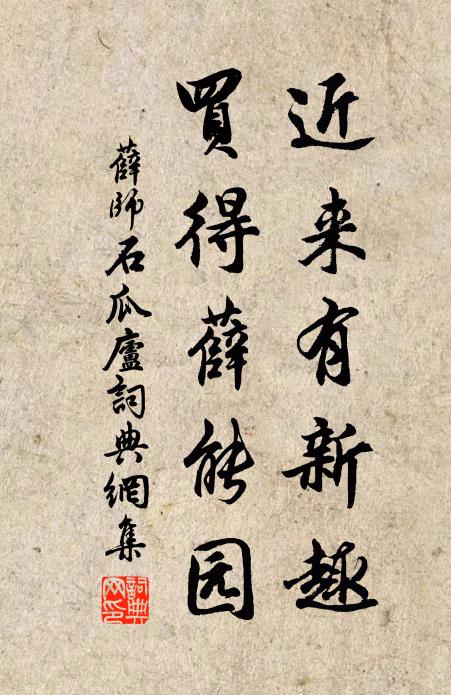 近来有新趣
買得薛能园
薛師石瓜廬詞典網集
詞典网印